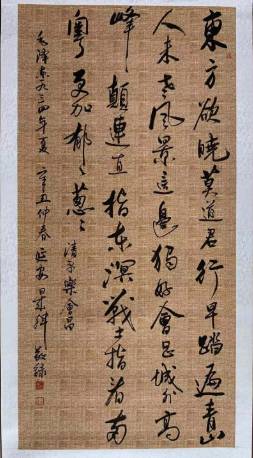 東方欲曉莫道君行早踏遍青山
人未老風景這邊獨好會昌城外高
峰〻顛連直指東溟戰士指看南
粵更加郁〻蔥〻
清平樂會昌
毛澤東九三四年夏 辛丑仲春延安
敬錄